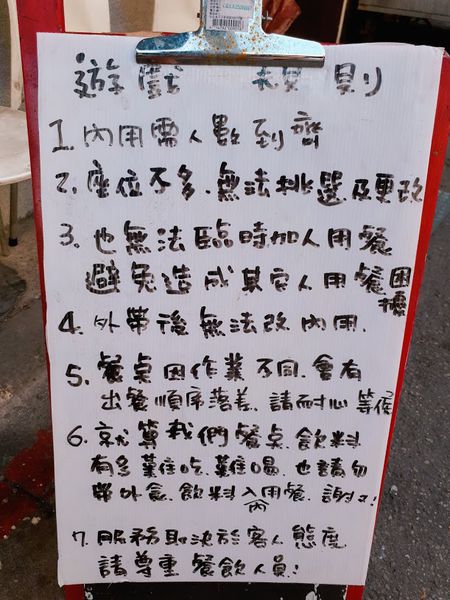 遊戲規則
1. 內用需人數到齊
2. 座位不多.無法挑選及更改
3. 也無法臨時加人用餐
避免造成其它人用餐困擾
4. 外帶後無法改內用.
5. 餐桌因作業不同.會有
出餐順序落差.請耐心等候
6. 就算我們餐点.飲料
有多難吃.難喝.也請勿
帶外食.飲料入內用餐.謝々!
7. 服務取決於客人態度
請尊重餐飲人員!